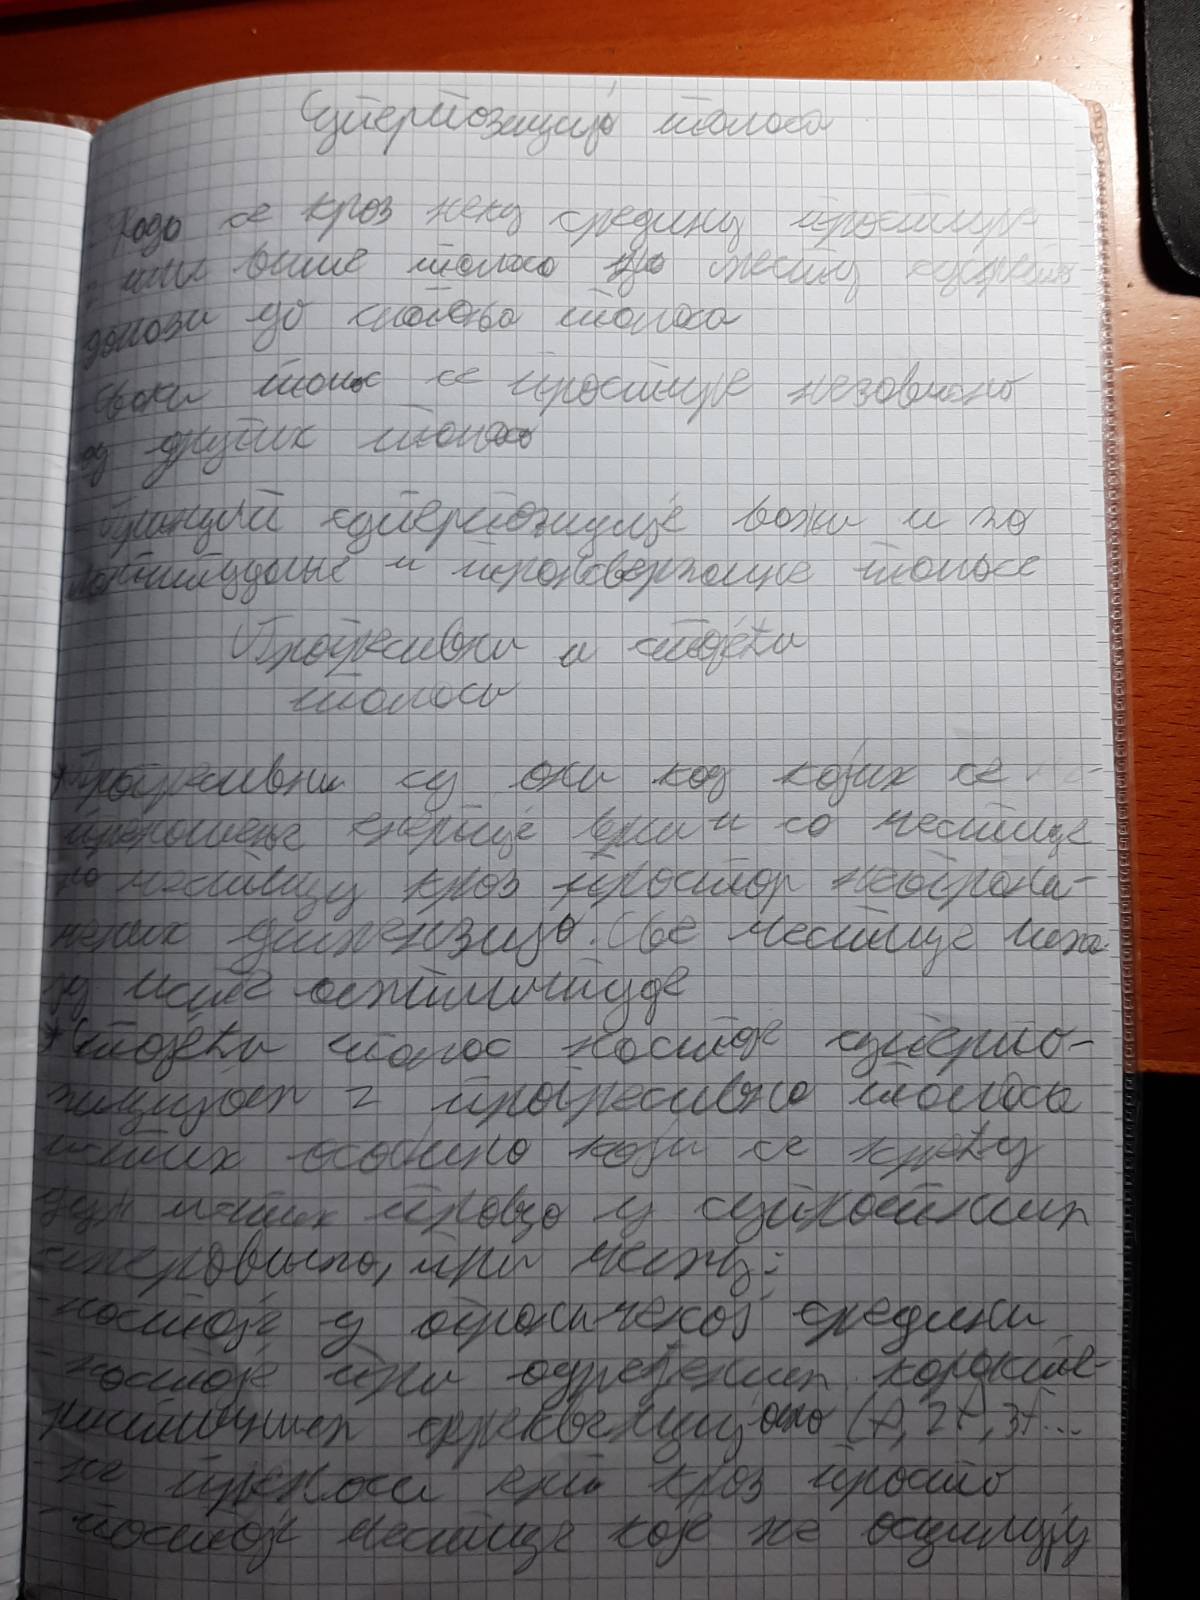 Суперпозиција таласа
- Када се кроз неку средину простире
или више таласа на месту сусрета
долази до слагања таласа
- Сваки талас се простире независно
од других таласа
- Принцип суперпозиције важи и за
лонгитудалне и трансверзалне таласе
Прогресивни и стојећи
таласи
* Прогресивни су они код којих се
преношење енергије врши са честице
на честицу кроз простор неограни-
чених димензија. Све честице имa-
ју исте амплитуде
* Стојећи талас настаје суперпо-
зицијом 2 прогресивна таласа
истих особина који се крећу
дуж истих праваца у супротним
смеровима, при чему:
- настаје у ограниченој средини
- настаје при одређеним каракте-
ристичним фреквенцијама (f, 2f, 3f...
- не преноси ен. кроз просто
- постоје честице које не осцилују